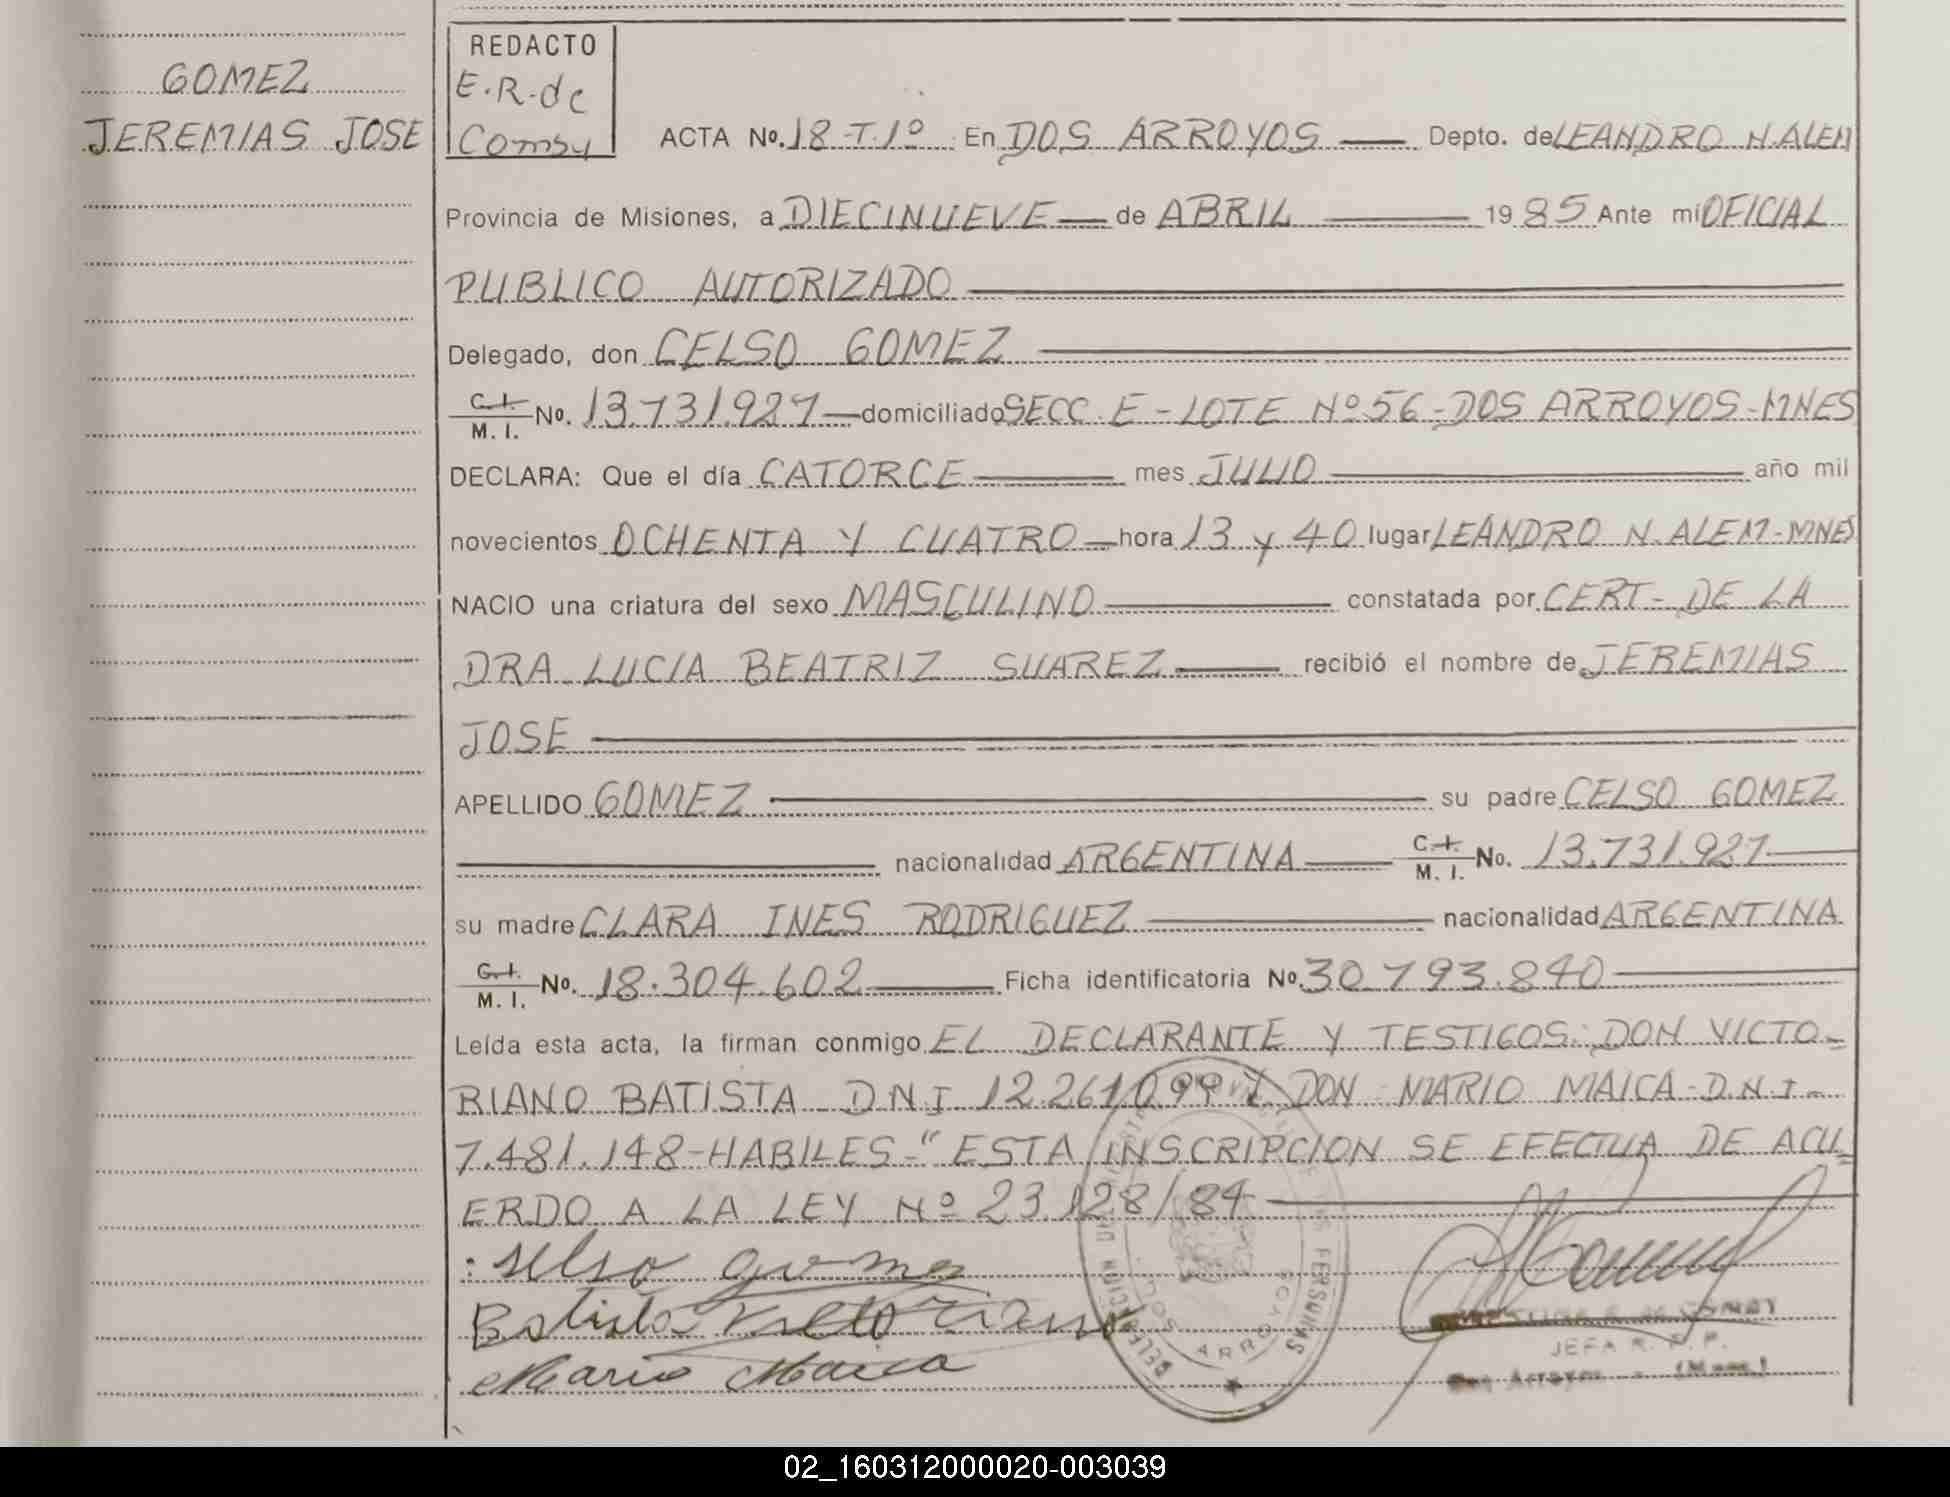 GOMEZ
JEREMIAS JOSE
REDACTO
E.R. de
ACTA No. 18-T.1º En DOS ARROYOS Depto. de LEANDRO N. ALEM
Provincia de Misiones, a DIECINUEVE de ABRIL 1985 Ante mi OFICIAL
PUBLICO AUTORIZADO
Delegado, don CELSO GOMEZ
C.I. M. I. No. 13.731.927 domiciliado SECC. E - LOTE Nº 56 - DOS ARROYOS - MNES
DECLARA: Que el día CATORCE mes JULIO año mil
novecientos OCHENTA Y CUATRO hora 13 y 40 lugar LEANDRO N. ALEM - MNES
NACIO una criatura del sexo MASCULINO constatada por CERT- DE LA
DRA LUCIA BEATRIZ SUAREZ recibió el nombre de JEREMIAS
JOSE
APELLIDO GOMEZ su padre CELSO GOMEZ
nacionalidad ARGENTINA C.I. M. I. No. 13.731.927
su madre CLARA INES RODRIGUEZ nacionalidad ARGENTINA
C.I. M. I. No. 18.304.602 Ficha identificatoria No. 30.793.840
Leída esta acta, la firman conmigo EL DECLARANTE Y TESTIGOS: DON VICTO-
RIANO BATISTA D.N.I 12.261.099 Y DON MARIO MAICA - D.N.I -
7.481.148 - HABILES - " ESTA INSCRIPCION SE EFECTUA DE ACU-
ERDO A LA LEY Nº 23.128/84
: selso gomes
Batista Victoriano
Mario Maica
DOS ARROYOS
JEFA R. P. P.
Dos Arroyos - (Mnes.)
02_160312000020-003039